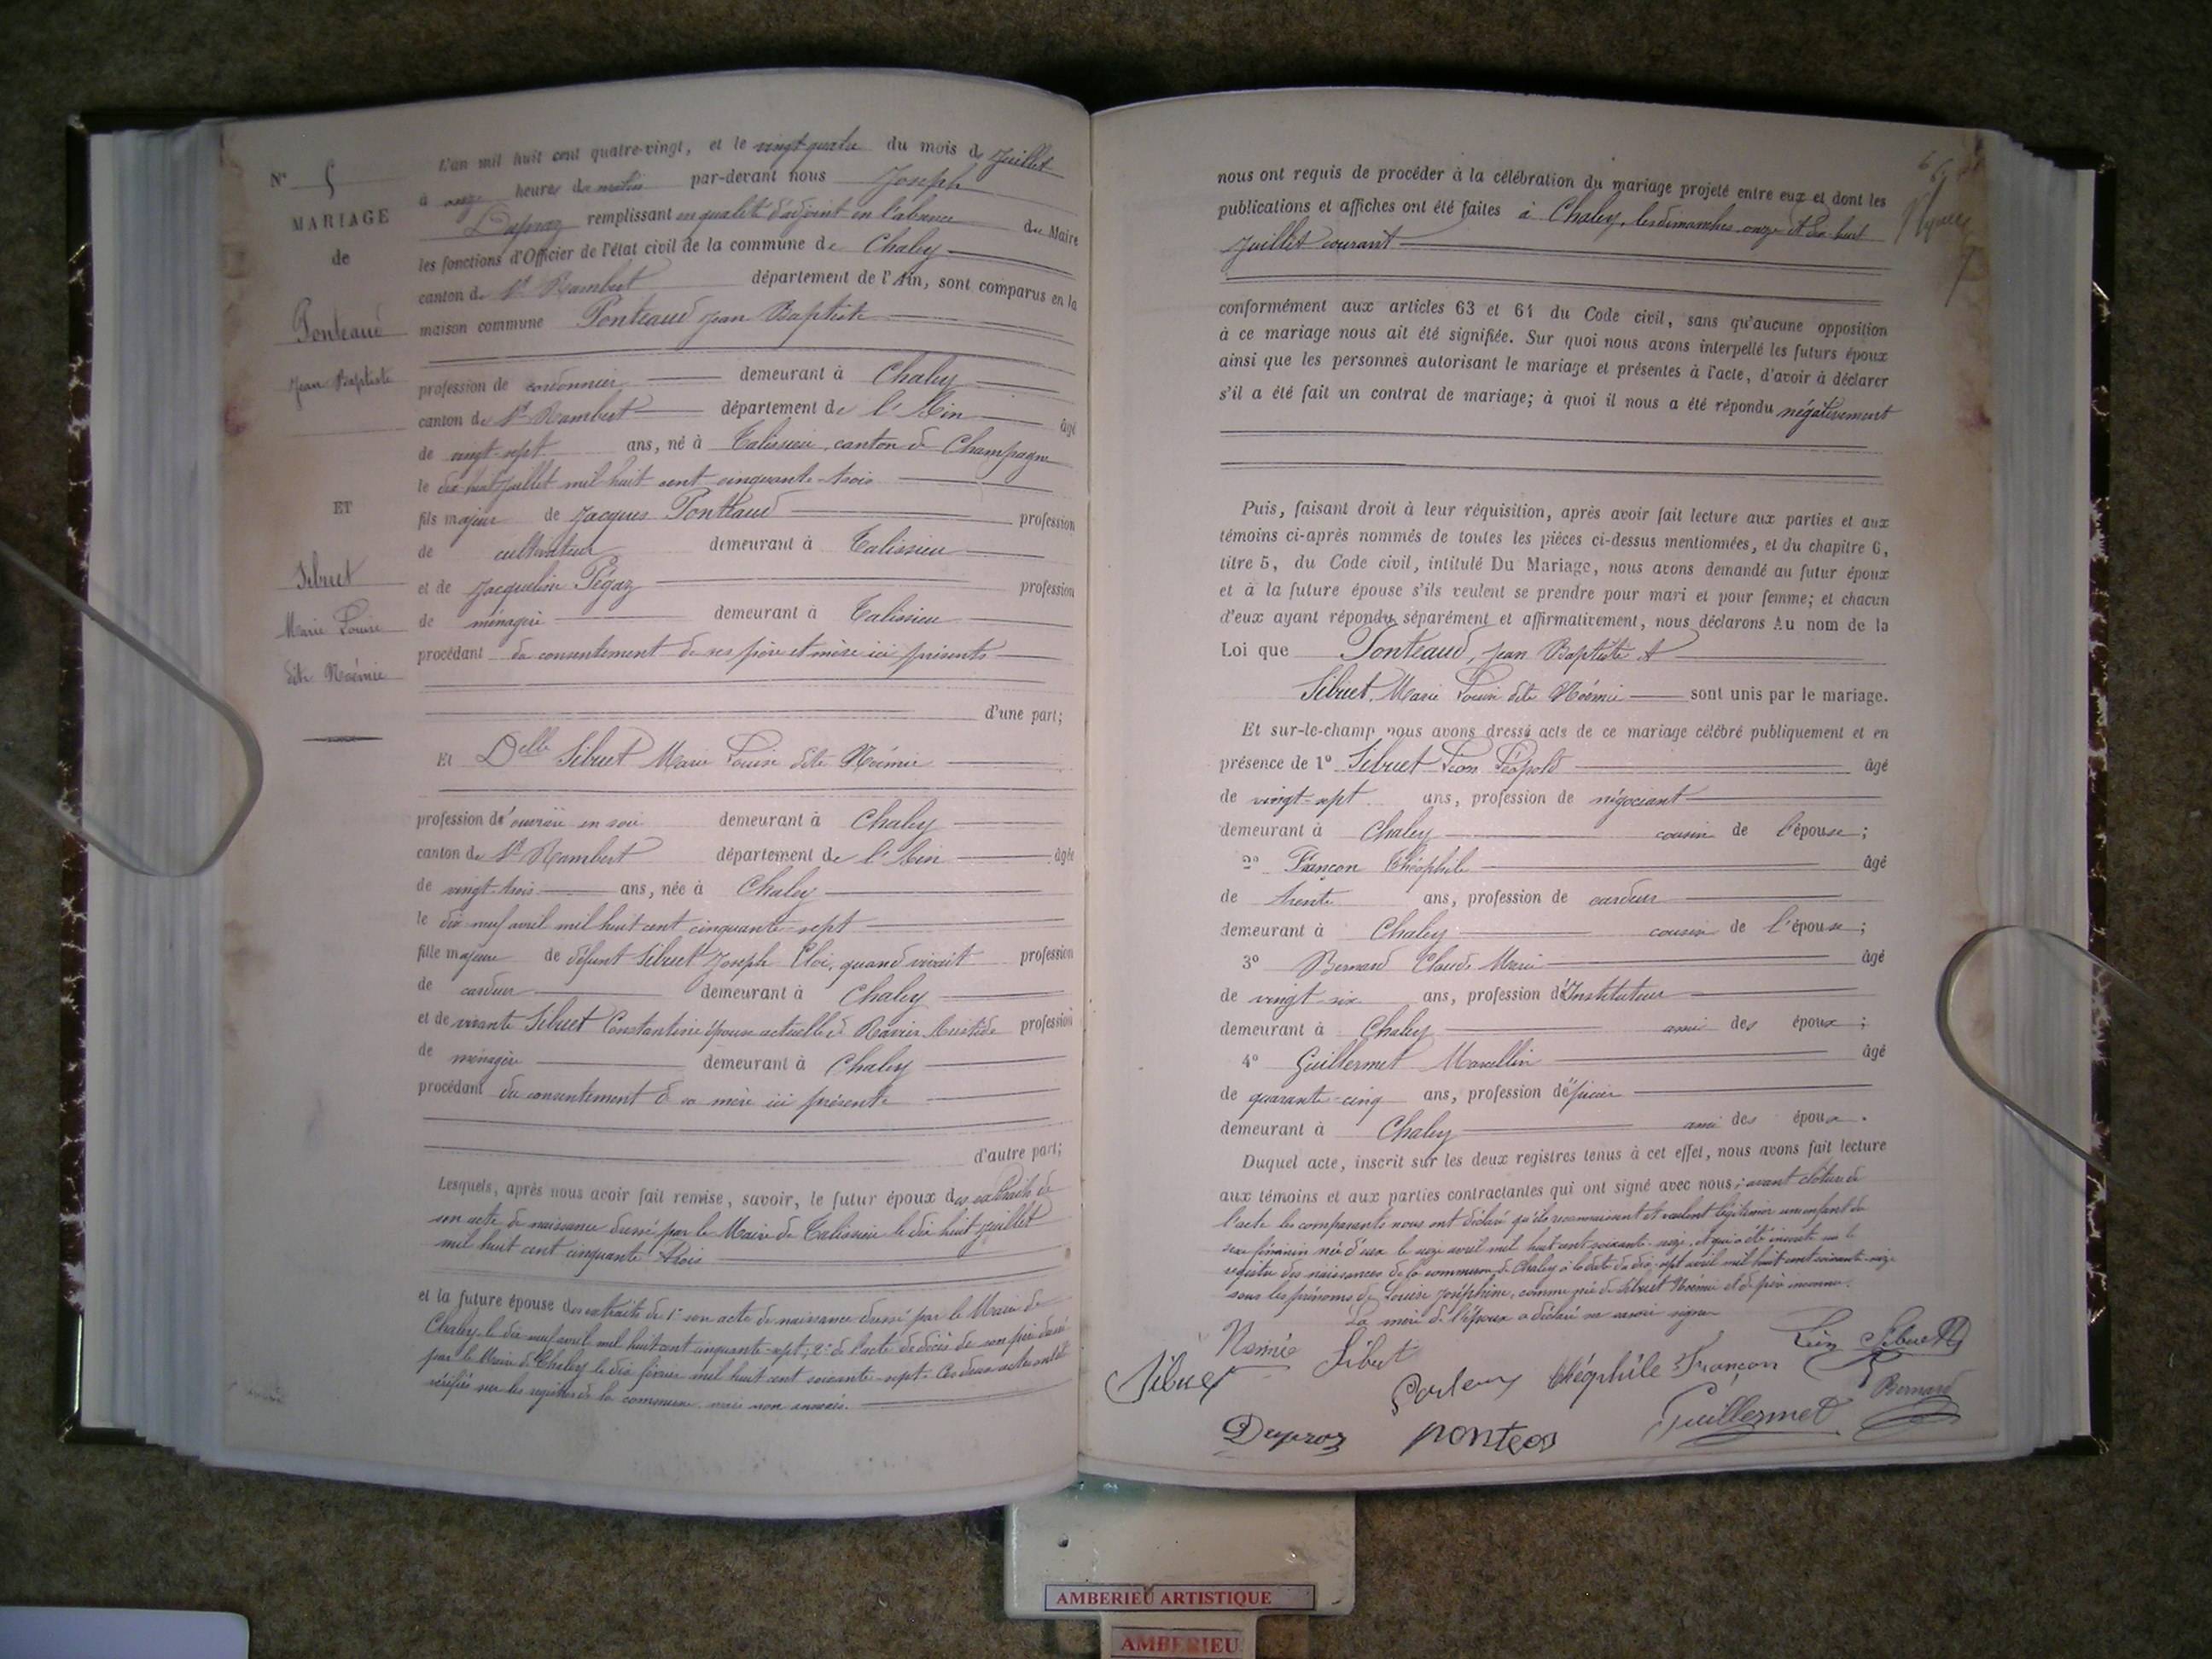 N° 5
MARIAGE
de
Ponteaud
Jean Baptiste
ET
Sibuet
Marie Louise
dite Noémie
L'an mil huit cent quatre-vingt, et le vingt-quatre du mois de Juillet
à onze heures du matin par-devant nous Joseph
Dupraz remplissant en qualité d'adjoint en l'absence du Maire
les fonctions d'Officier de l'état civil de la commune de Chaley
canton de St Rambert département de l'Ain, sont comparus en la
maison commune Ponteaud Jean Baptiste
profession de cordonnier demeurant à Chaley
canton de St Rambert département de l'Ain âgé
de vingt-sept ans, né à Talissieu, canton de Champagne
le dix huit juillet mil huit cent cinquante-trois
fils majeur de Jacques Ponteaud profession
de cultivateur demeurant à Talissieu
et de Jacqueline Pégaz profession
de ménagère demeurant à Talissieu
procédant du consentement de ses père et mère ici présents
d'une part;
Et Delle Sibuet Marie Louise dite Noémie
profession d'ouvrière en soie demeurant à Chaley
canton de St Rambert département de l'Ain âgée
de vingt-trois ans, née à Chaley
le dix neuf avril mil huit cent cinquante-sept
fille majeure de défunt Sibuet Joseph Eloi, quand vivait profession
de cardeur demeurant à Chaley
et de vivante Sibuet Constantine épouse actuelle de Ravier Aristide profession
de ménagère demeurant à Chaley
procédant du consentement de sa mère ici présente
d'autre part;
Lesquels, après nous avoir fait remise, savoir, le futur époux des extraits de
son acte de naissance dressé par le Maire de Talissieu le dix huit juillet
mil huit cent cinquante trois
et la future épouse des extraits de 1° son acte de naissance dressé par le Maire de
Chaley le dix neuf avril mil huit cent cinquante-sept; 2° de l'acte de décès de son père dressé
par le Maire de Chaley le dix février mil huit cent soixante-sept. Ces deux actes ont été
vérifiés sur les registres de la commune mais non annexés.
nous ont requis de procéder à la célébration du mariage projeté entre eux et dont les
publications et affiches ont été faites à Chaley, les dimanches onze et dix huit
Juillet courant
conformément aux articles 63 et 64 du Code civil, sans qu'aucune opposition
à ce mariage nous ait été signifiée. Sur quoi nous avons interpellé les futurs époux
ainsi que les personnes autorisant le mariage et présentes à l'acte, d'avoir à déclarer
s'il a été fait un contrat de mariage; à quoi il nous a été répondu négativement
Puis, faisant droit à leur réquisition, après avoir fait lecture aux parties et aux
témoins ci-après nommés de toutes les pièces ci-dessus mentionnées, et du chapitre 6,
titre 5, du Code civil, intitulé Du Mariage, nous avons demandé au futur époux
et à la future épouse s'ils veulent se prendre pour mari et pour femme; et chacun
d'eux ayant répondu séparément et affirmativement, nous déclarons Au nom de la
Loi que Ponteaud, Jean Baptiste et
Sibuet, Marie Louise dite Noémie sont unis par le mariage.
Et sur-le-champ nous avons dressé acte de ce mariage célébré publiquement et en
présence de 1° Sibuet Léon Léopold âgé
de vingt-sept ans, profession de négociant
demeurant à Chaley cousin de l'épouse;
2° Françon Théophile âgé
de trente ans, profession de cardeur
demeurant à Chaley cousin de l'épouse;
3° Bernard Claude Marie âgé
de vingt six ans, profession d'Instituteur
demeurant à Chaley ami des époux;
4° Guillermet Marcellin âgé
de quarante-cinq ans, profession d'épicier
demeurant à Chaley ami des époux.
Duquel acte, inscrit sur les deux registres tenus à cet effet, nous avons fait lecture
aux témoins et aux parties contractantes qui ont signé avec nous; avant clôture de
l'acte les comparants nous ont déclaré qu'ils reconnaissent et veulent légitimer un enfant du
sexe féminin née d'eux le seize avril mil huit cent soixante-seize, et qui a été inscrite sur le
registre des naissances de la commune de Chaley à la date du dix-sept avril mil huit cent soixante-seize
sous les prénoms de Louise Joséphine, comme née de Sibuet Noémie et de père inconnu.
La mère de l'époux a déclaré ne savoir signer
Noémie Sibuet Léon Sibuet
Sibuet Théophile Françon Bernard
Dupraz Guillermet
AMBERIEU ARTISTIQUE
AMBERIEU